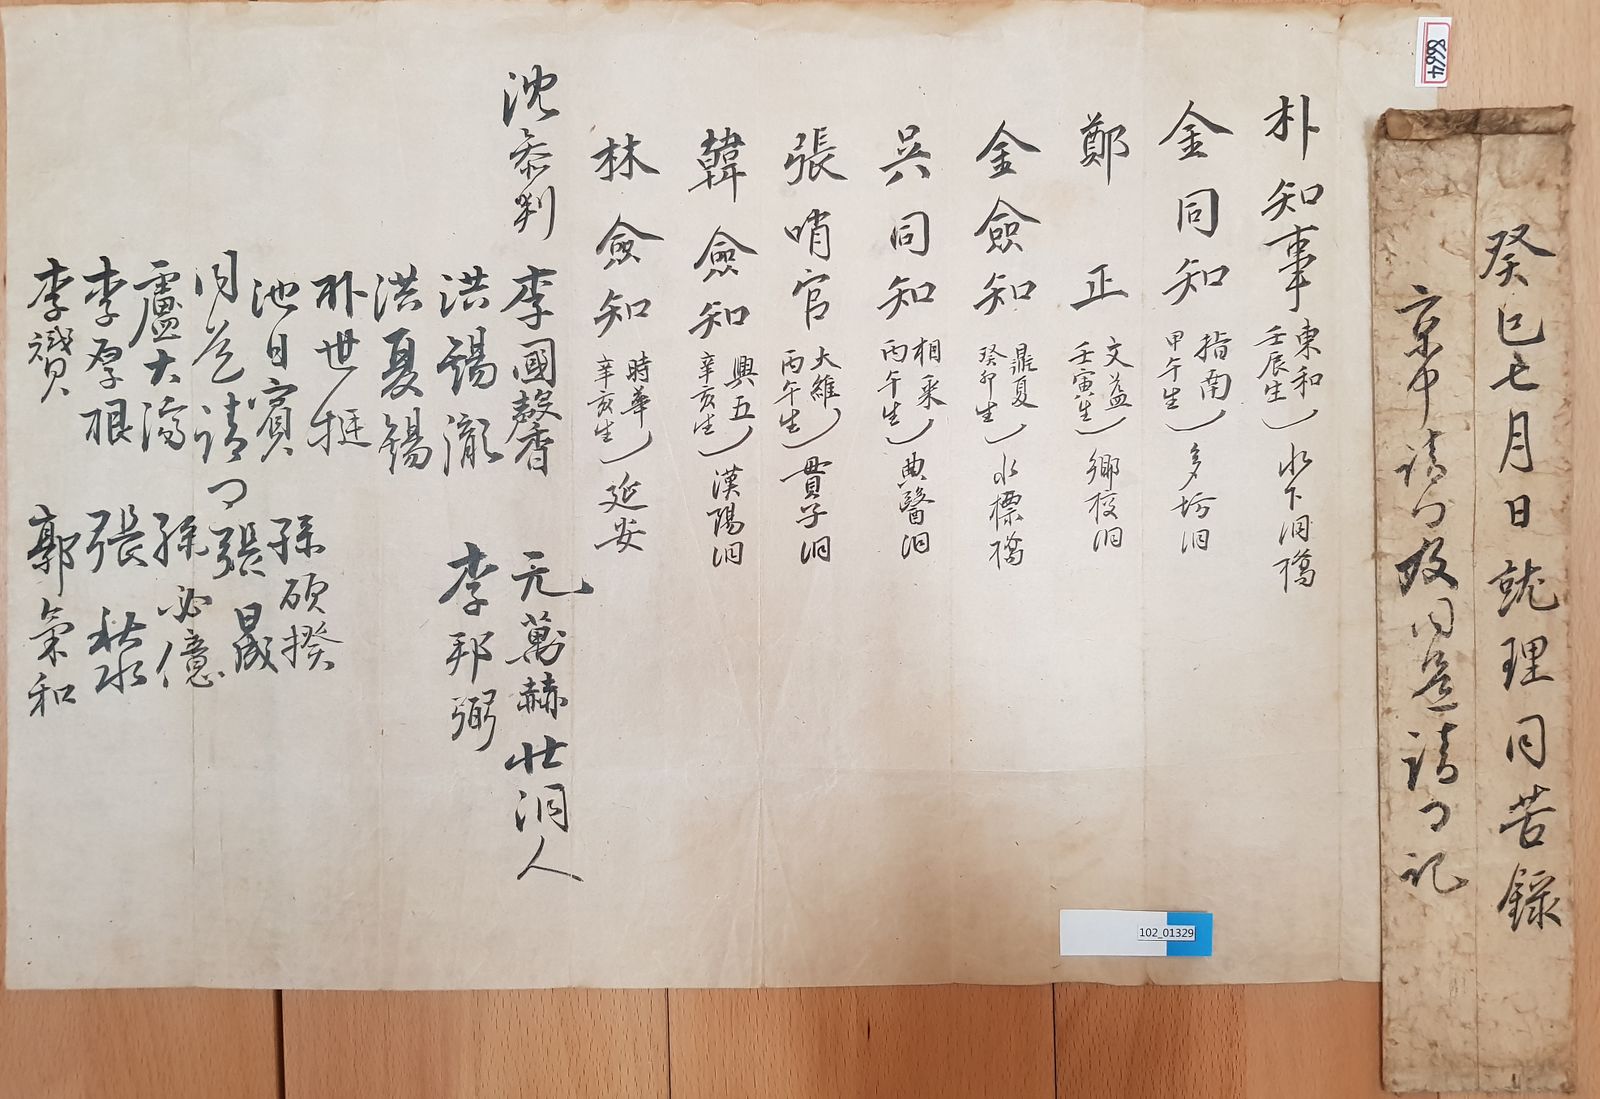 癸巳七月日就理同苦錄
京中請口及同道請口記
朴知事 東和 壬辰生 水下洞橋
金同知 指南 甲午生 多坊洞
鄭正 文益 壬寅生 鄉校洞
金僉知 鼎夏 癸卯生 水標橋
吳同知 相采 丙午生 典醫洞
張哨官 大維 丙午生 貫子洞
韓僉知 興五 辛亥生 漢陽洞
林僉知 時華 辛亥生 延安
沈參判 李國馨香 元萬赫 壯洞人
洪錫瀧 李邦弼
洪夏錫
朴世挺
池日賓 孫碩揆
同道請口 張晟
盧大濟 孫必億
李厚根 張秋水
李瓚 郭氣和
8664
102_01329